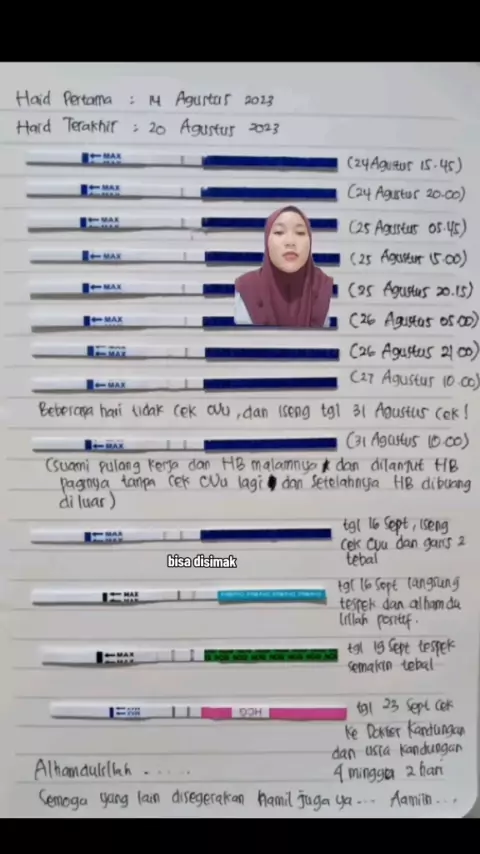 Haid Pertama : 14 Agustus 2023
Haid Terakhir : 20 Agustus 2023
MAX (24 Agustus 15.45)
MAX (24 Agustus 20.00)
MAX (25 Agustus 05.45)
MAX (25 Agustus 15.00)
MAX (25 Agustus 20.15)
MAX (26 Agustus 05.00)
MAX (26 Agustus 21.00)
MAX (27 Agustus 10.00)
Beberapa hari tidak cek OVU, dan iseng tgl 31 Agustus cek!
MAX (31 Agustus 10.00)
(Suami pulang kerja dan HB malamnya dan dilanjut HB
paginya tanpa cek OVU lagi dan setelahnya HB dibuang
diluar)
MAX tgl 16 Sept, iseng
cek OVU dan garis 2
tebal
bisa disimak
MAX tgl 16 Sept langsung
tespek dan alhamdu
lillah positif.
MAX tgl 19 Sept tespek
semakin tebal
HCG tgl 23 Sept cek
ke Dokter Kandungan
dan usia kandungan
4 minggu 2 hari
Alhamdulillah . . . . .
Semoga yang lain disegerakan hamil juga ya ... Aamiin ...